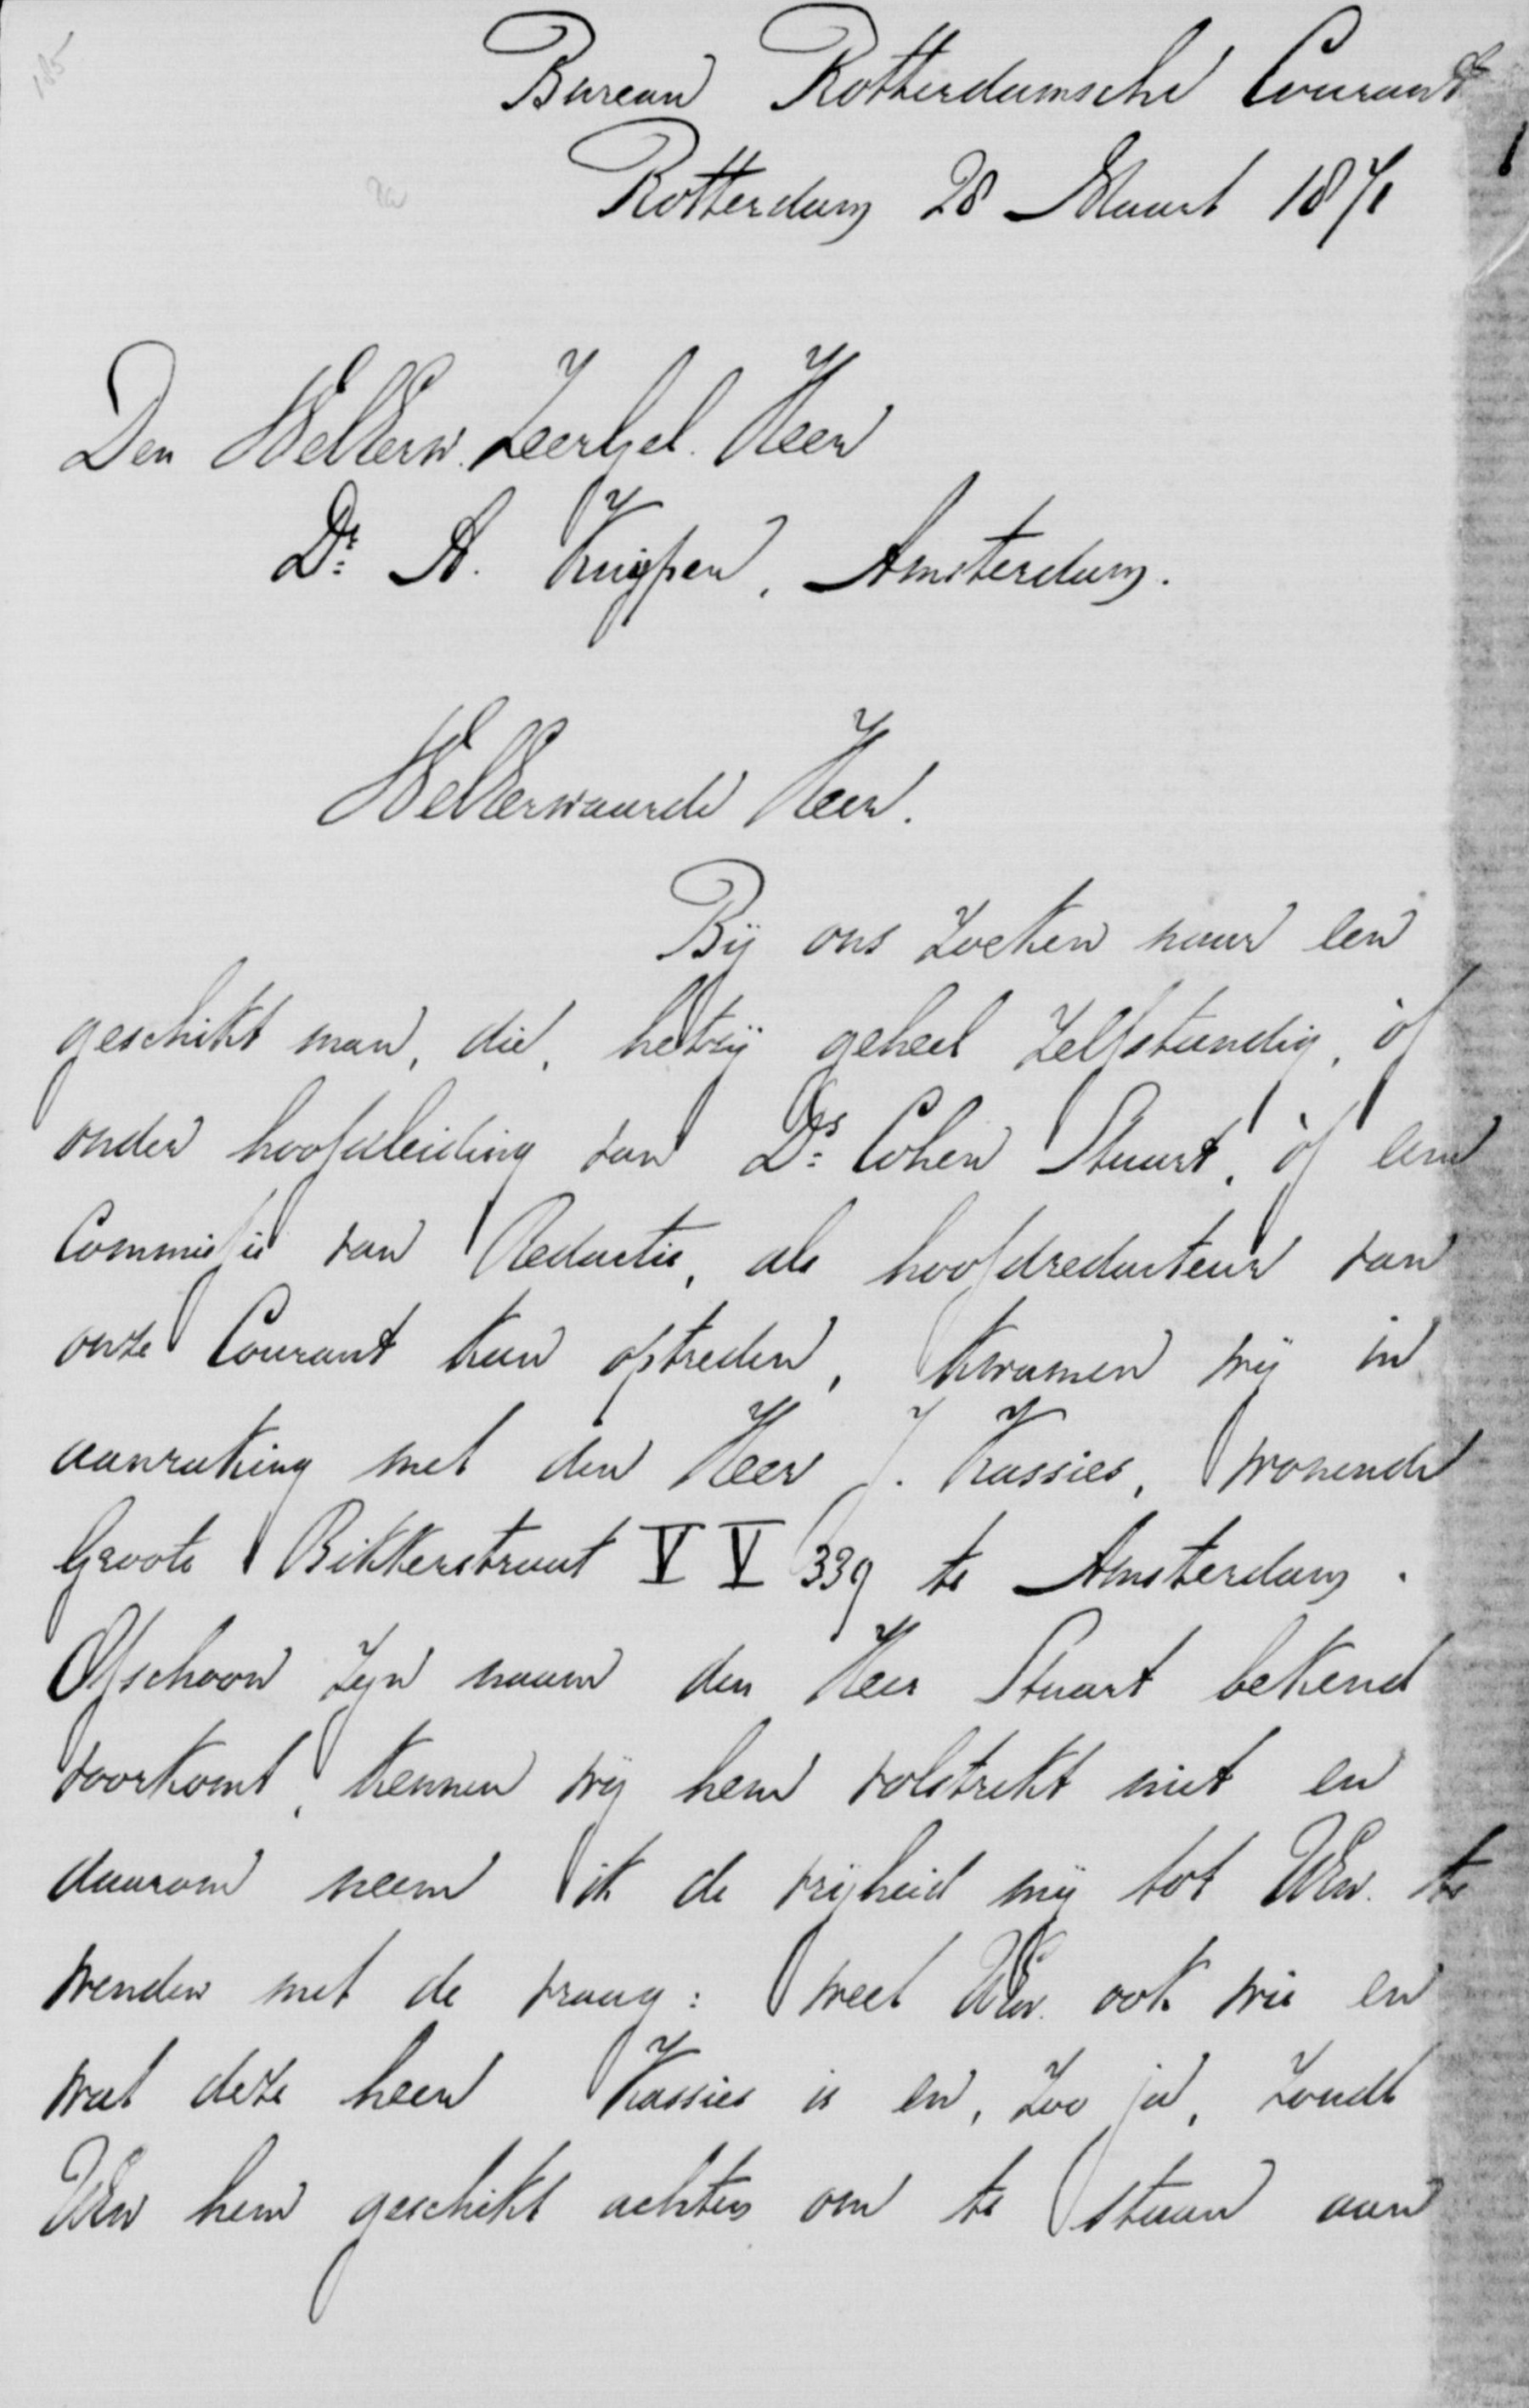 185
Bureau Rotterdamsche Courant
Rotterdam 28 Maart 1871
Den WelEerw. Zeergel. Heer
Dr. A. Kuijper, Amsterdam.
WelEerwaarde Heer.
Bij ons zoeken naar een
geschikt man, die, hetzij geheel zelfstandig, òf
onder hoofdleiding van Ds. Cohen Stuart, òf een
Commissie van Redactie, als hoofdredacteur van
onze Courant kan optreden, kwamen wij in
aanraking met den Heer J. Kassies, wonende
Groote Bikkerstraat V V 339 te Amsterdam.
Ofschoon zijn naam den Heer Stuart bekend
voorkomt, kennen wij hem volstrekt niet en
daarom neem ik de vrijheid mij tot UEw. te
wenden met de vraag: weet UEw. ook wie en
wat deze heer Kassies is en, zoo ja, zoudt
UEw hem geschikt achten om te staan aan